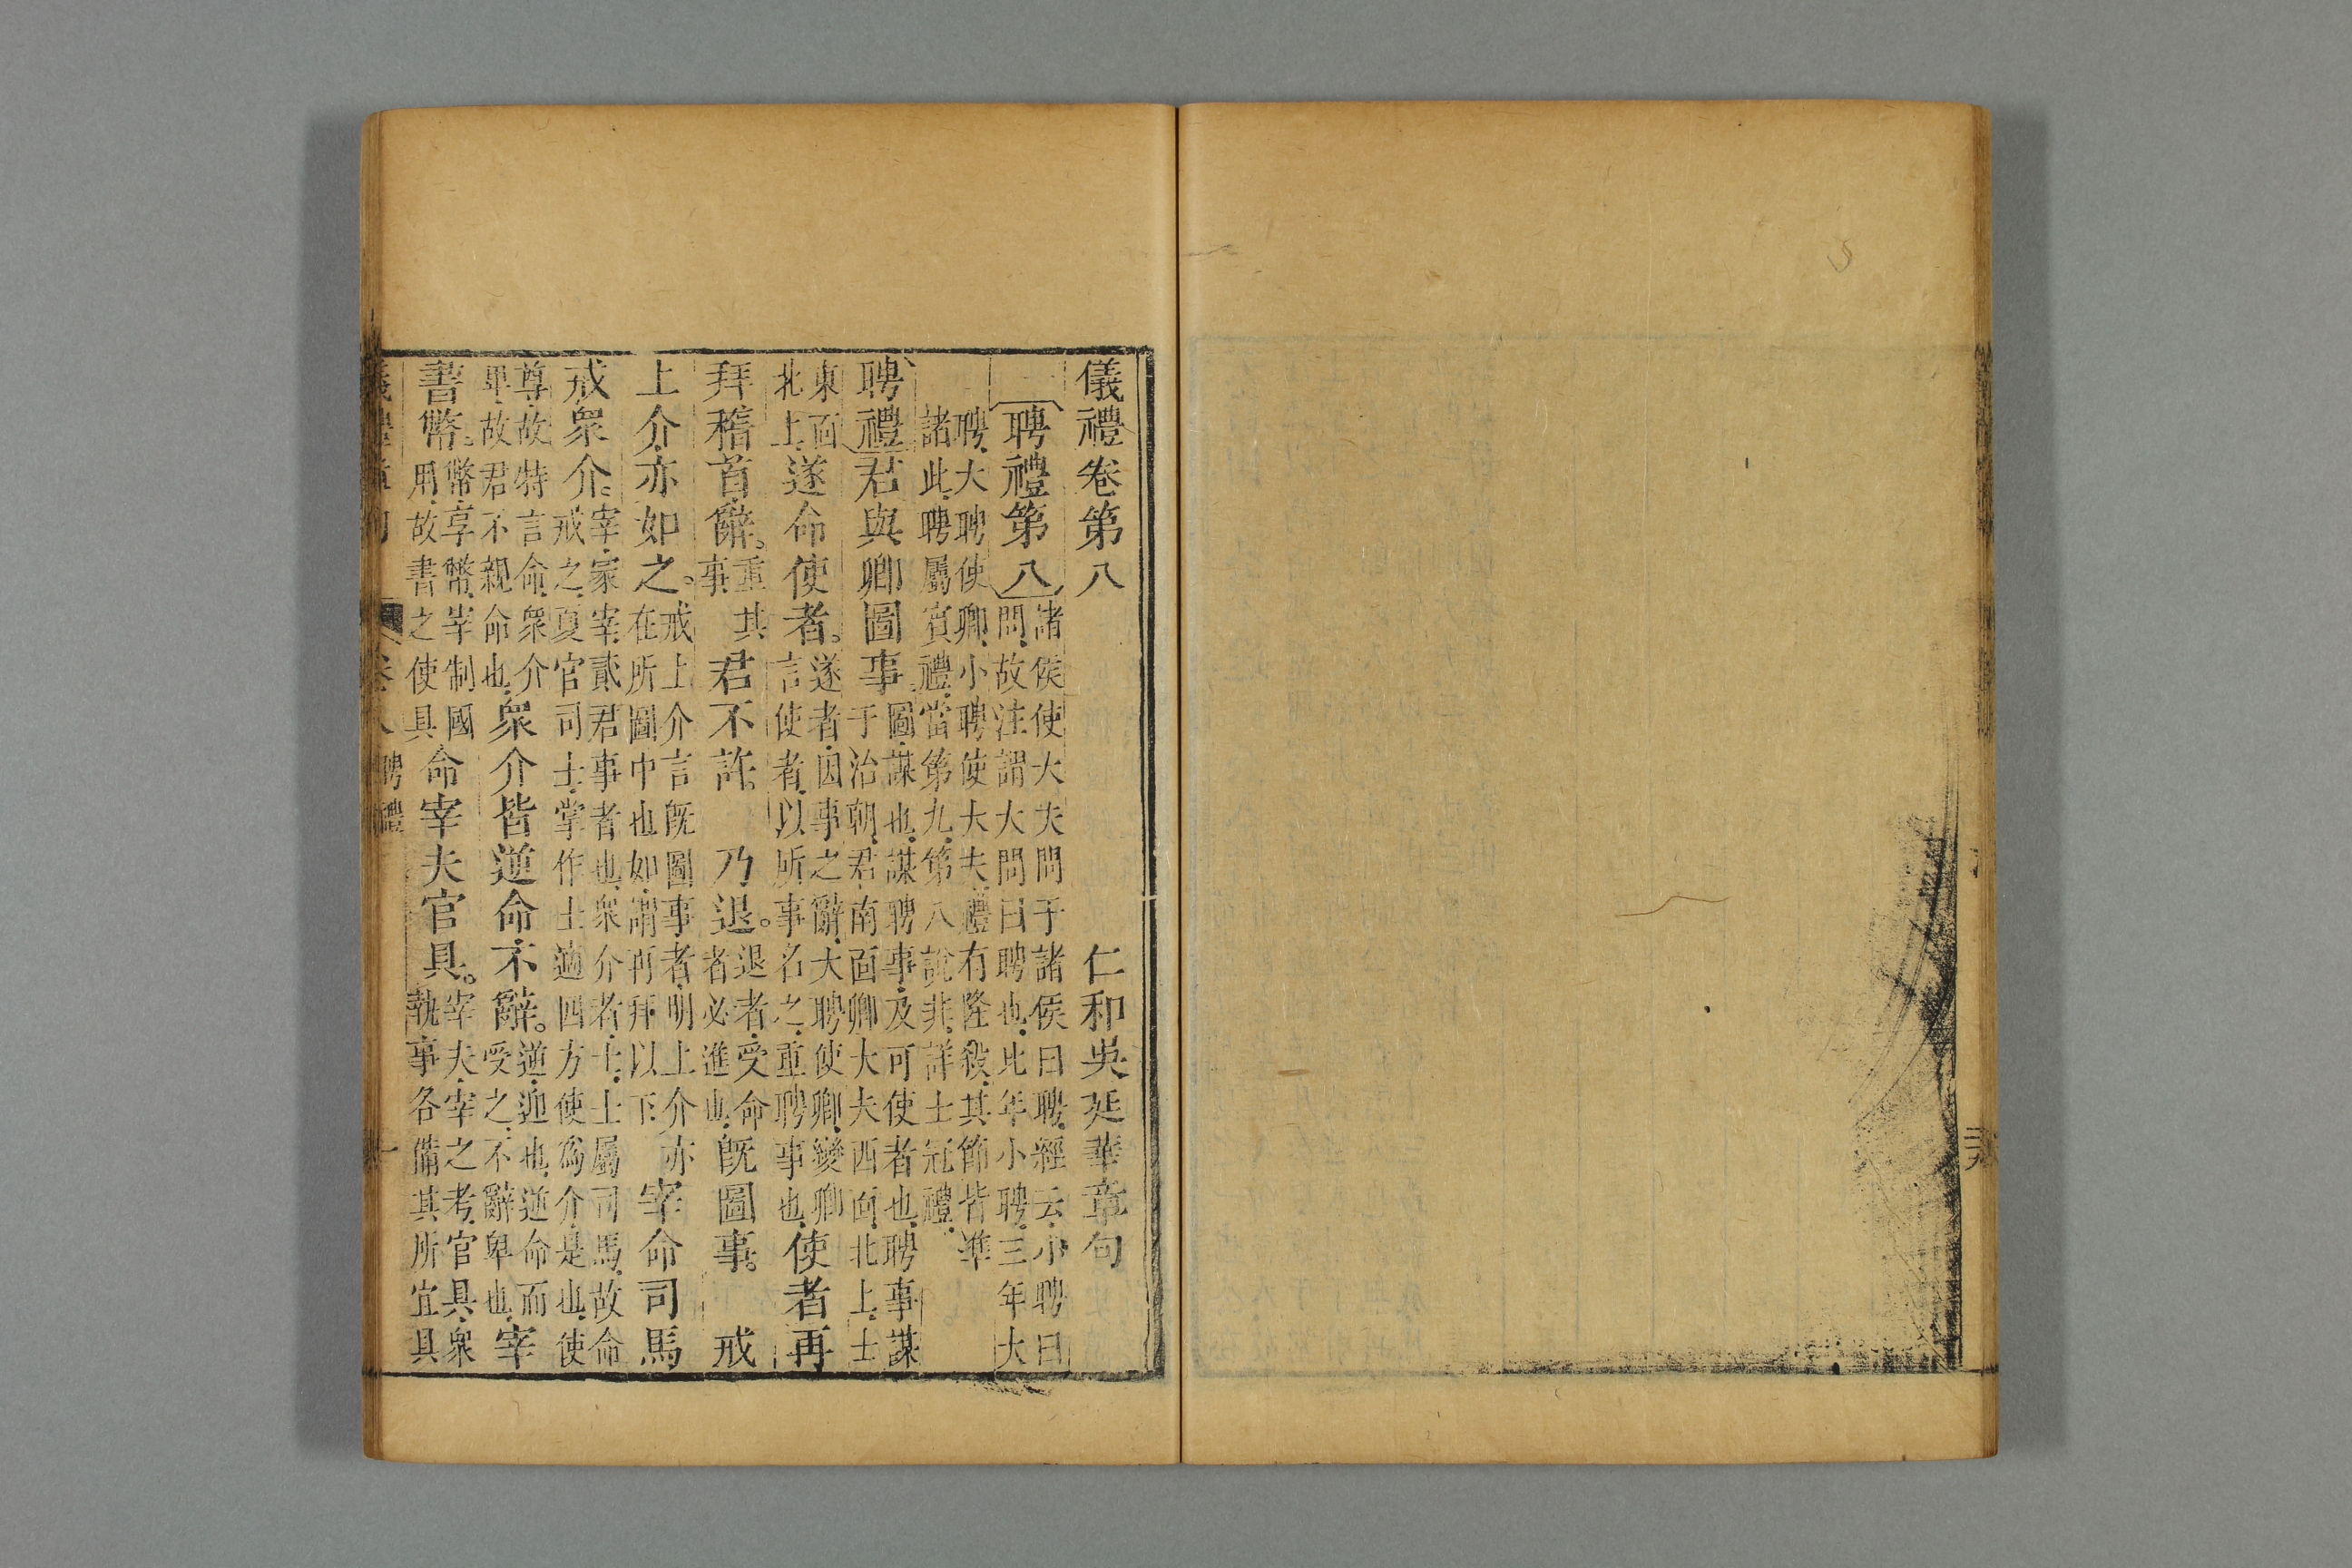 儀禮卷第八
仁和吳廷華章句
聘禮第八
諸侯使大夫問于諸侯曰聘經云小聘曰
問故注謂大問曰聘也比年小聘三年大
聘大聘使卿小聘使大夫禮有隆殺其節皆準
諸此聘屬賓禮當第九第八說非詳士冠禮
聘禮君與卿圖事
圖謀也謀聘事及可使者也聘事謀
于治朝君南面卿大夫西面北上士
東面
北上
遂命使者
遂者因事之辭大聘使卿變卿
言使者以所事名之重聘事也
使者再
拜稽首辭
重其
事
君不許
乃退
退者受命
者必進也
既圖事
戒
上介亦如之
戒上介言既圖事者明上介亦
在所圖中也如謂再拜以下
宰命司馬
戒衆介
宰家宰貳君事者也衆介者士士屬司馬故命
戒之夏官司士掌作士適四方使爲介是也使
尊故特言命衆介
卑故君不親命也
衆介皆逆命不辭
逆迎也逆命而
受之不辭卑也
宰
書幣
幣享幣宰制國
用故書之使具
命宰夫官具
宰夫宰之考官具衆
執事各備其所宜具
卷八
聘禮
一